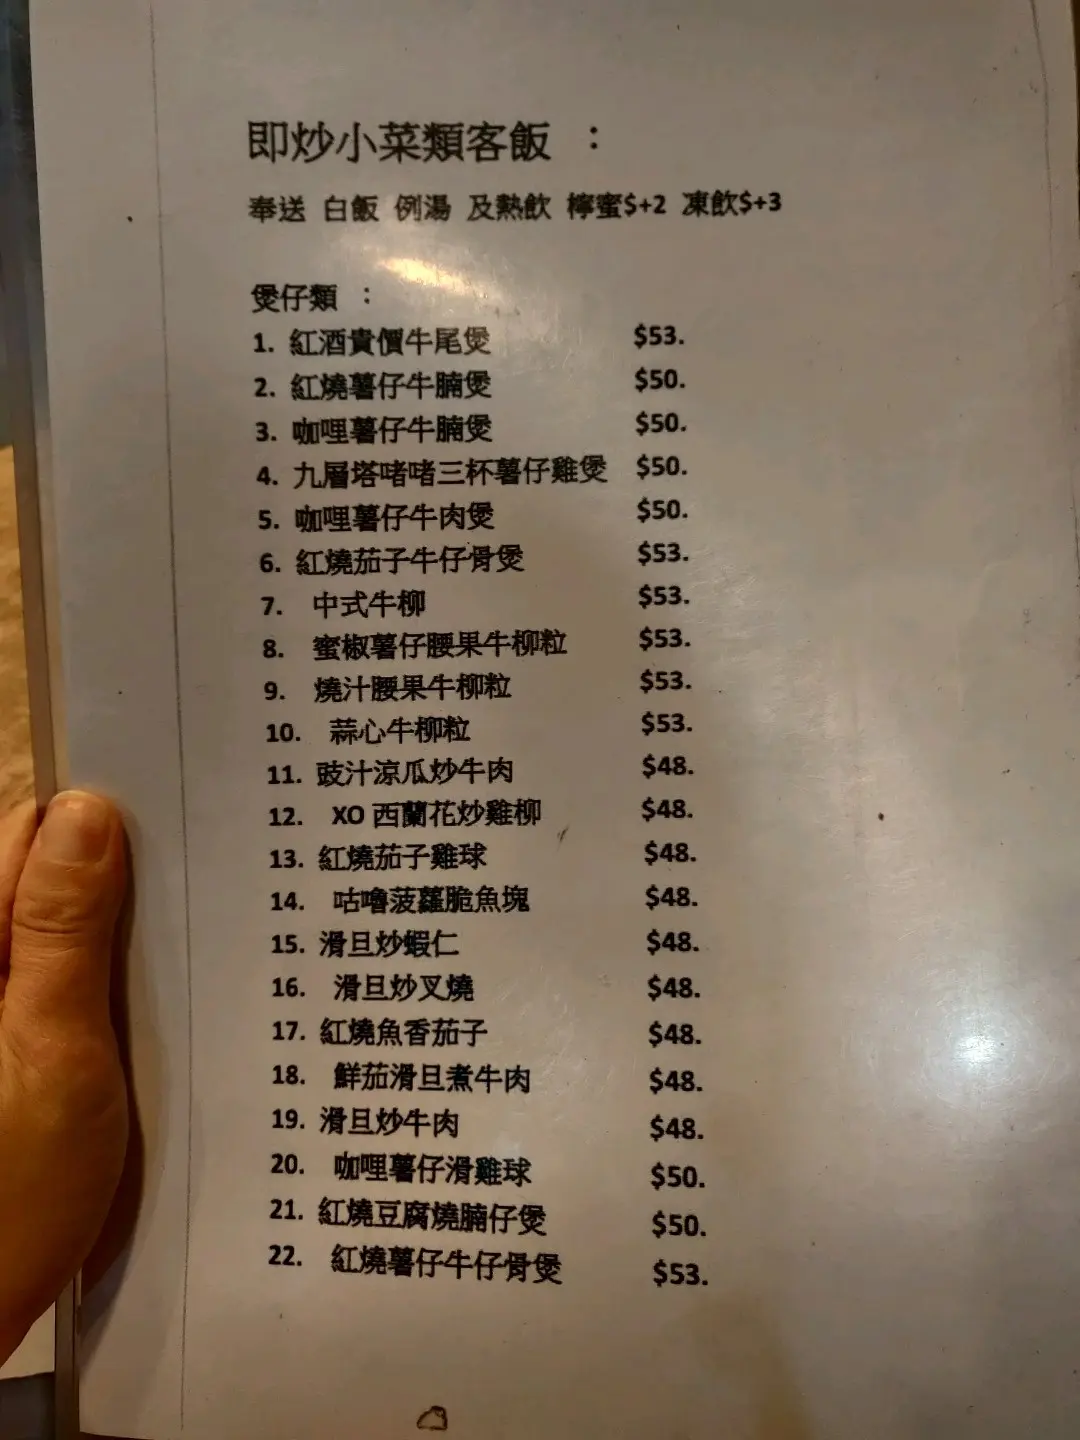 即炒小菜類客飯 ：
奉送 白飯 例湯 及熱飲 檸蜜$+2 凍飲$+3
煲仔類 ：
1. 紅酒貴價牛尾煲 $53.
2. 紅燒薯仔牛腩煲 $50.
3. 咖哩薯仔牛腩煲 $50.
4. 九層塔啫啫三杯薯仔雞煲 $50.
5. 咖哩薯仔牛肉煲 $50.
6. 紅燒茄子牛仔骨煲 $53.
7. 中式牛柳 $53.
8. 蜜椒薯仔腰果牛柳粒 $53.
9. 燒汁腰果牛柳粒 $53.
10. 蒜心牛柳粒 $53.
11. 豉汁涼瓜炒牛肉 $48.
12. XO 西蘭花炒雞柳 $48.
13. 紅燒茄子雞球 $48.
14. 咕嚕菠蘿脆魚塊 $48.
15. 滑旦炒蝦仁 $48.
16. 滑旦炒叉燒 $48.
17. 紅燒魚香茄子 $48.
18. 鮮茄滑旦煮牛肉 $48.
19. 滑旦炒牛肉 $48.
20. 咖哩薯仔滑雞球 $50.
21. 紅燒豆腐燒腩仔煲 $50.
22. 紅燒薯仔牛仔骨煲 $53.